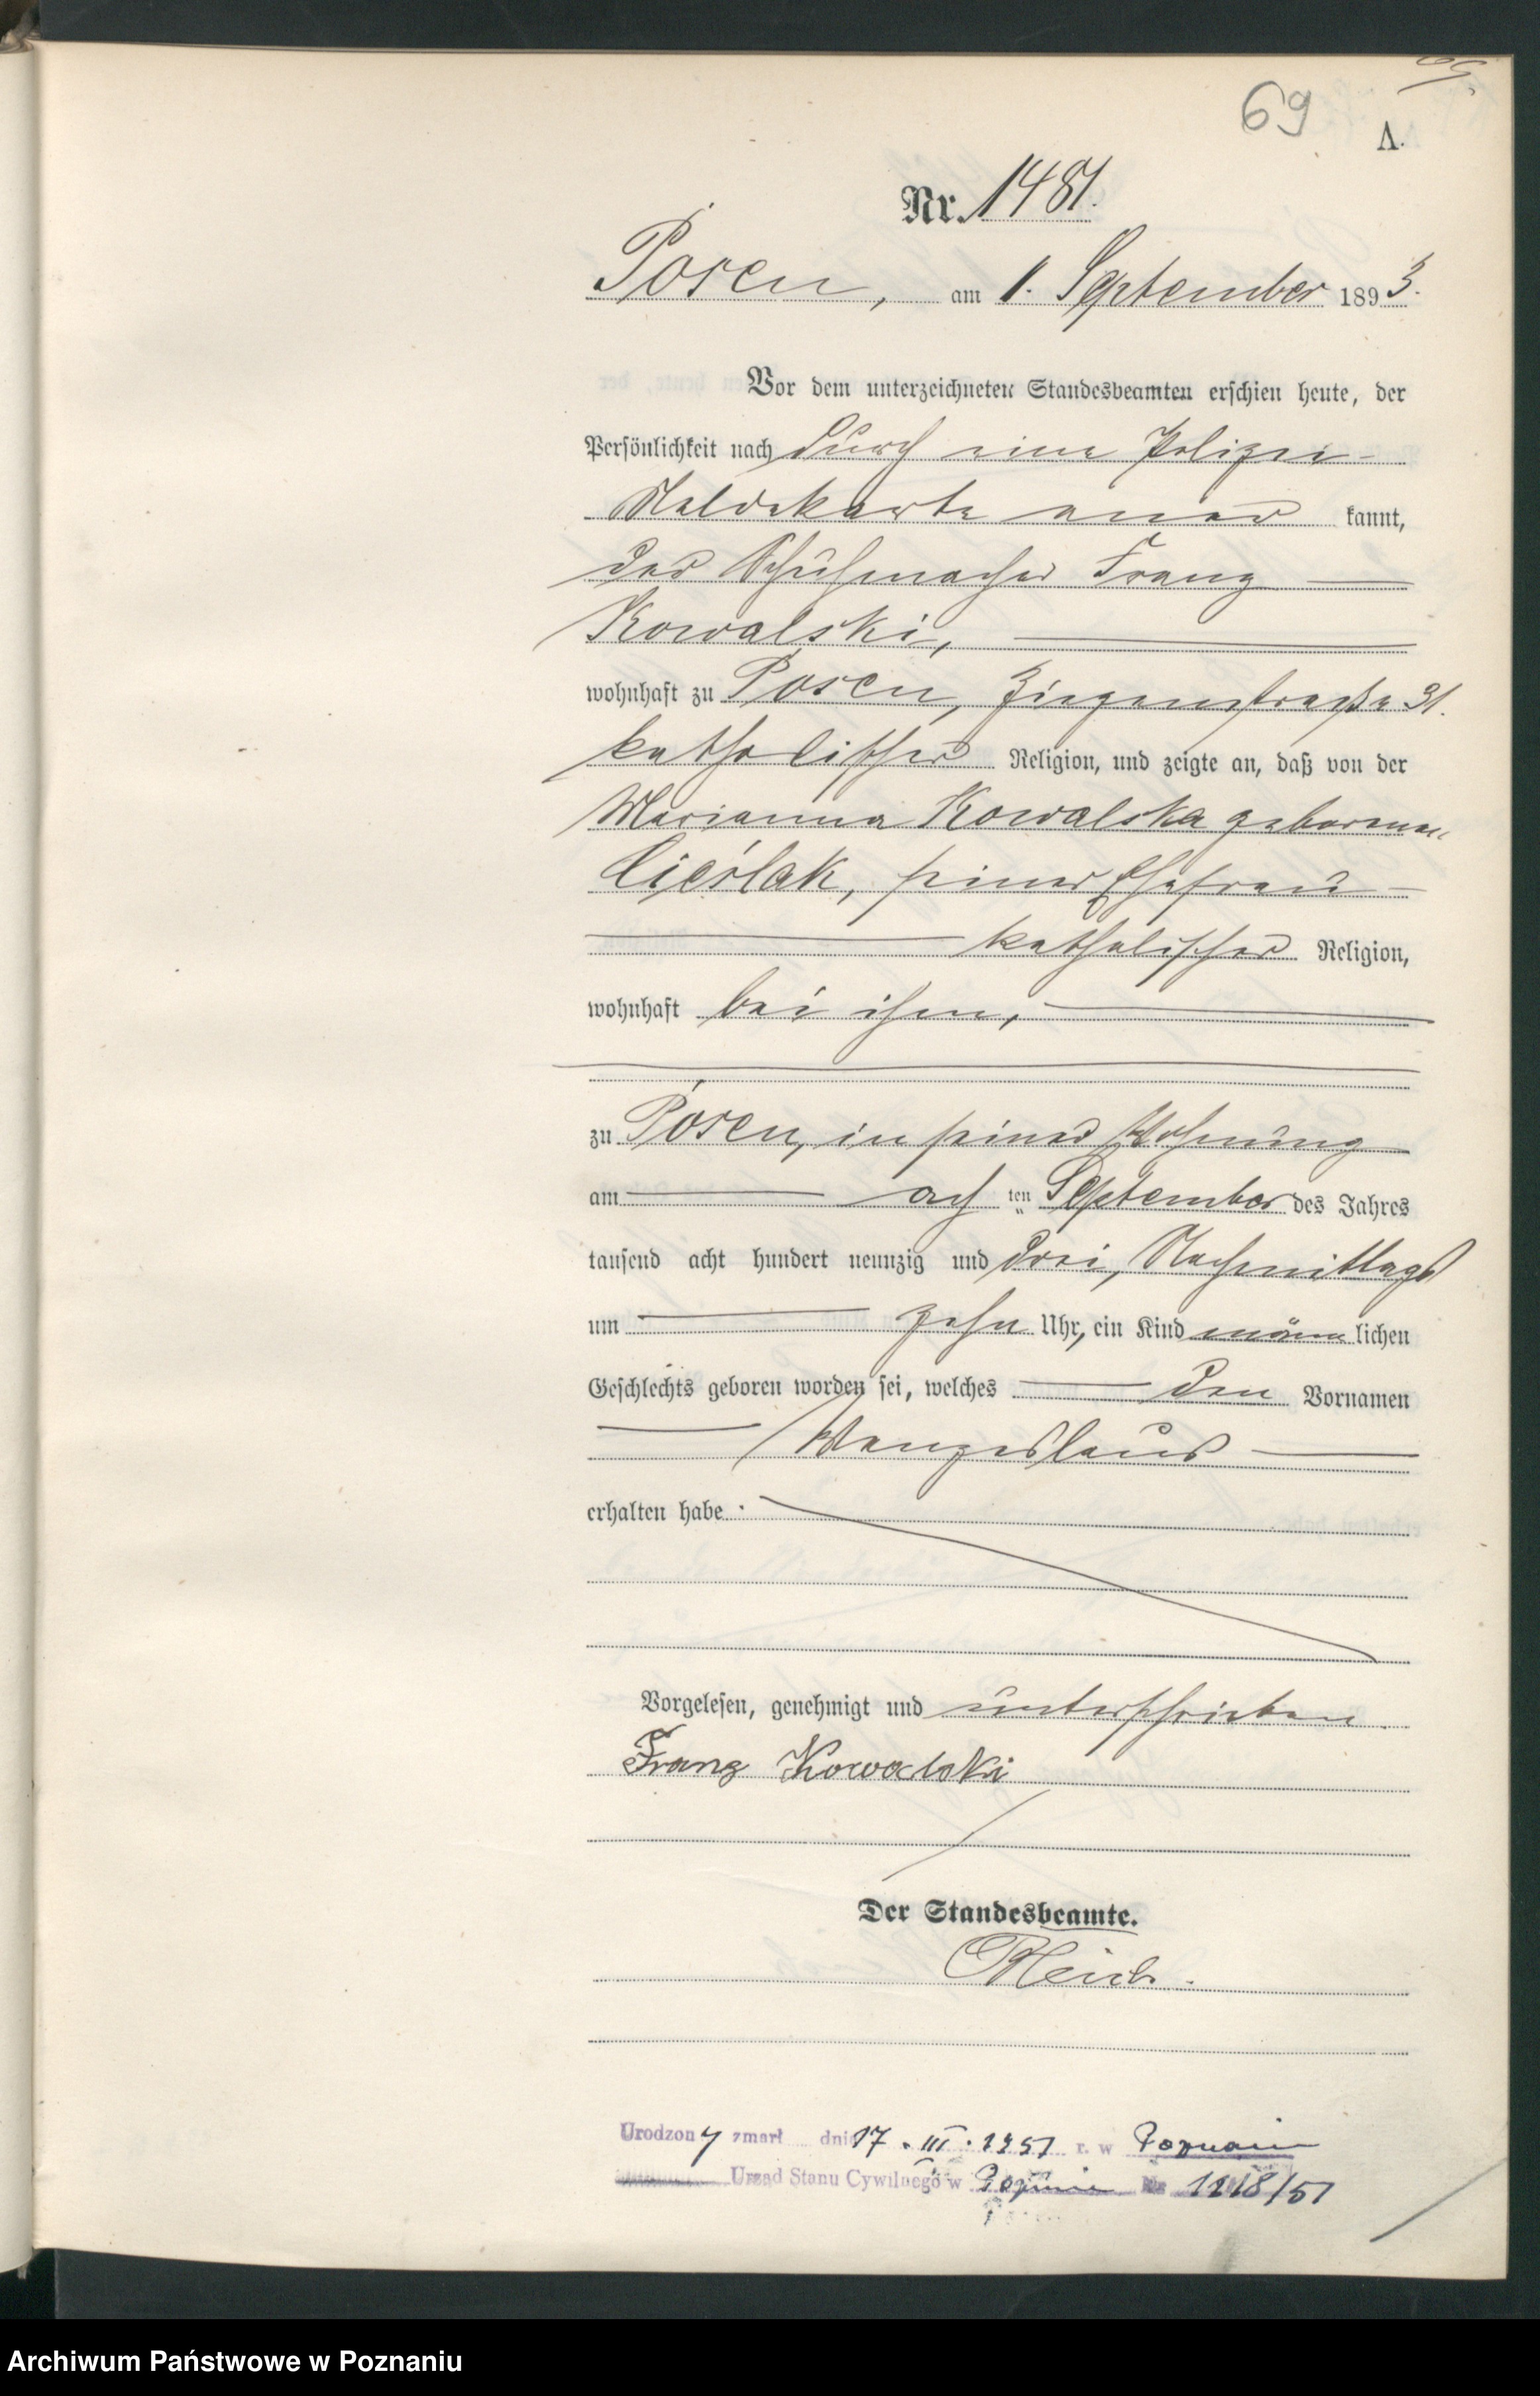 69
A.
Nr. 1481.
Posen, am 11. September 1893.
Vor dem unterzeichneten Standesbeamten erschien heute, der
Persönlichkeit nach durch eine Polizei-
Meldekarte aner kannt,
der Schuhmacher Franz
Kowalski,
wohnhaft zu Posen, Ziegenstraße 21.
katholischer Religion, und zeigte an, daß von der
Marianna Kowalska geborenen
Cieślak, seiner Ehefrau
katholischer Religion,
wohnhaft bei ihm,
zu Posen, in seiner Wohnung
am acht ten September des Jahres
tausend acht hundert neunzig und drei, Nachmittags
um zehn Uhr, ein Kind männ lichen
Geschlechts geboren worden sei, welches den Vornamen
Wenzeslaus
erhalten habe.
Vorgelesen, genehmigt und unterschrieben
Franz Kowalski
Der Standesbeamte.
Urodzony zmarł dnia 17. III. 1951 r. w Poznaniu
Urząd Stanu Cywilnego w Poznaniu Nr 1218/51
Archiwum Państwowe w Poznaniu